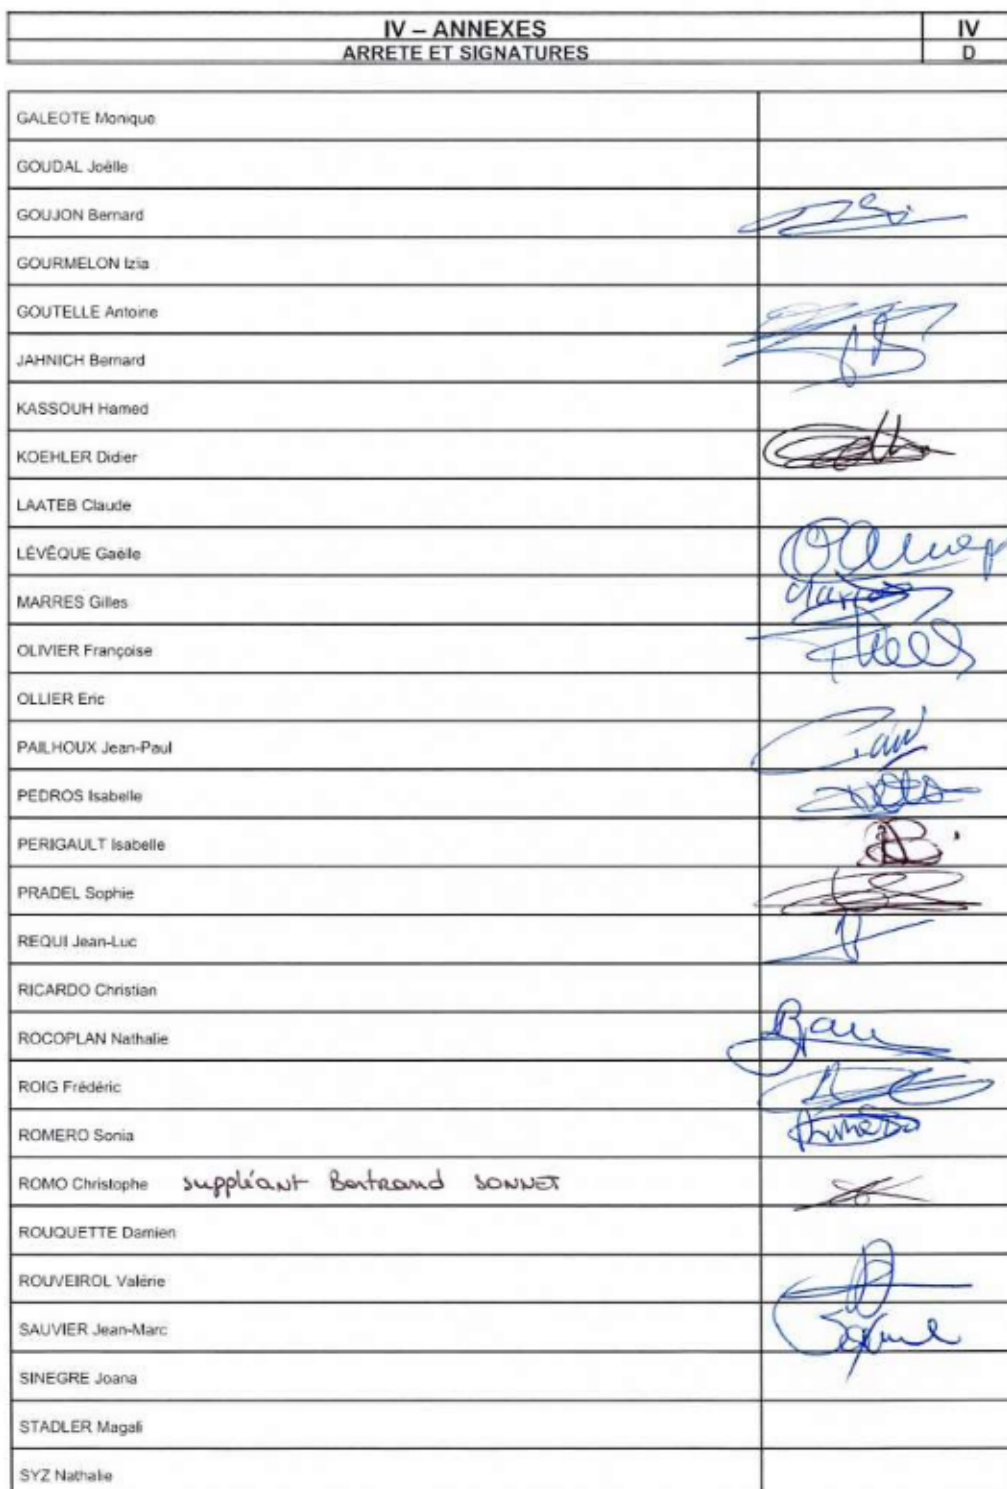 IV – ANNEXES IV
ARRETE ET SIGNATURES D
GALEOTE Monique
GOUDAL Joëlle
GOUJON Bernard
GOURMELON Izia
GOUTELLE Antoine
JAHNICH Bernard
KASSOUH Hamed
KOEHLER Didier
LAATEB Claude
LÉVÊQUE Gaëlle
MARRES Gilles
OLIVIER Françoise
OLLIER Eric
PAILHOUX Jean-Paul
PEDROS Isabelle
PERIGAULT Isabelle
PRADEL Sophie
REQUI Jean-Luc
RICARDO Christian
ROCOPLAN Nathalie
ROIG Frédéric
ROMERO Sonia
ROMO Christophe suppléant Bertrand SONNET
ROUQUETTE Damien
ROUVEIROL Valérie
SAUVIER Jean-Marc
SINEGRE Joana
STADLER Magali
SYZ Nathalie